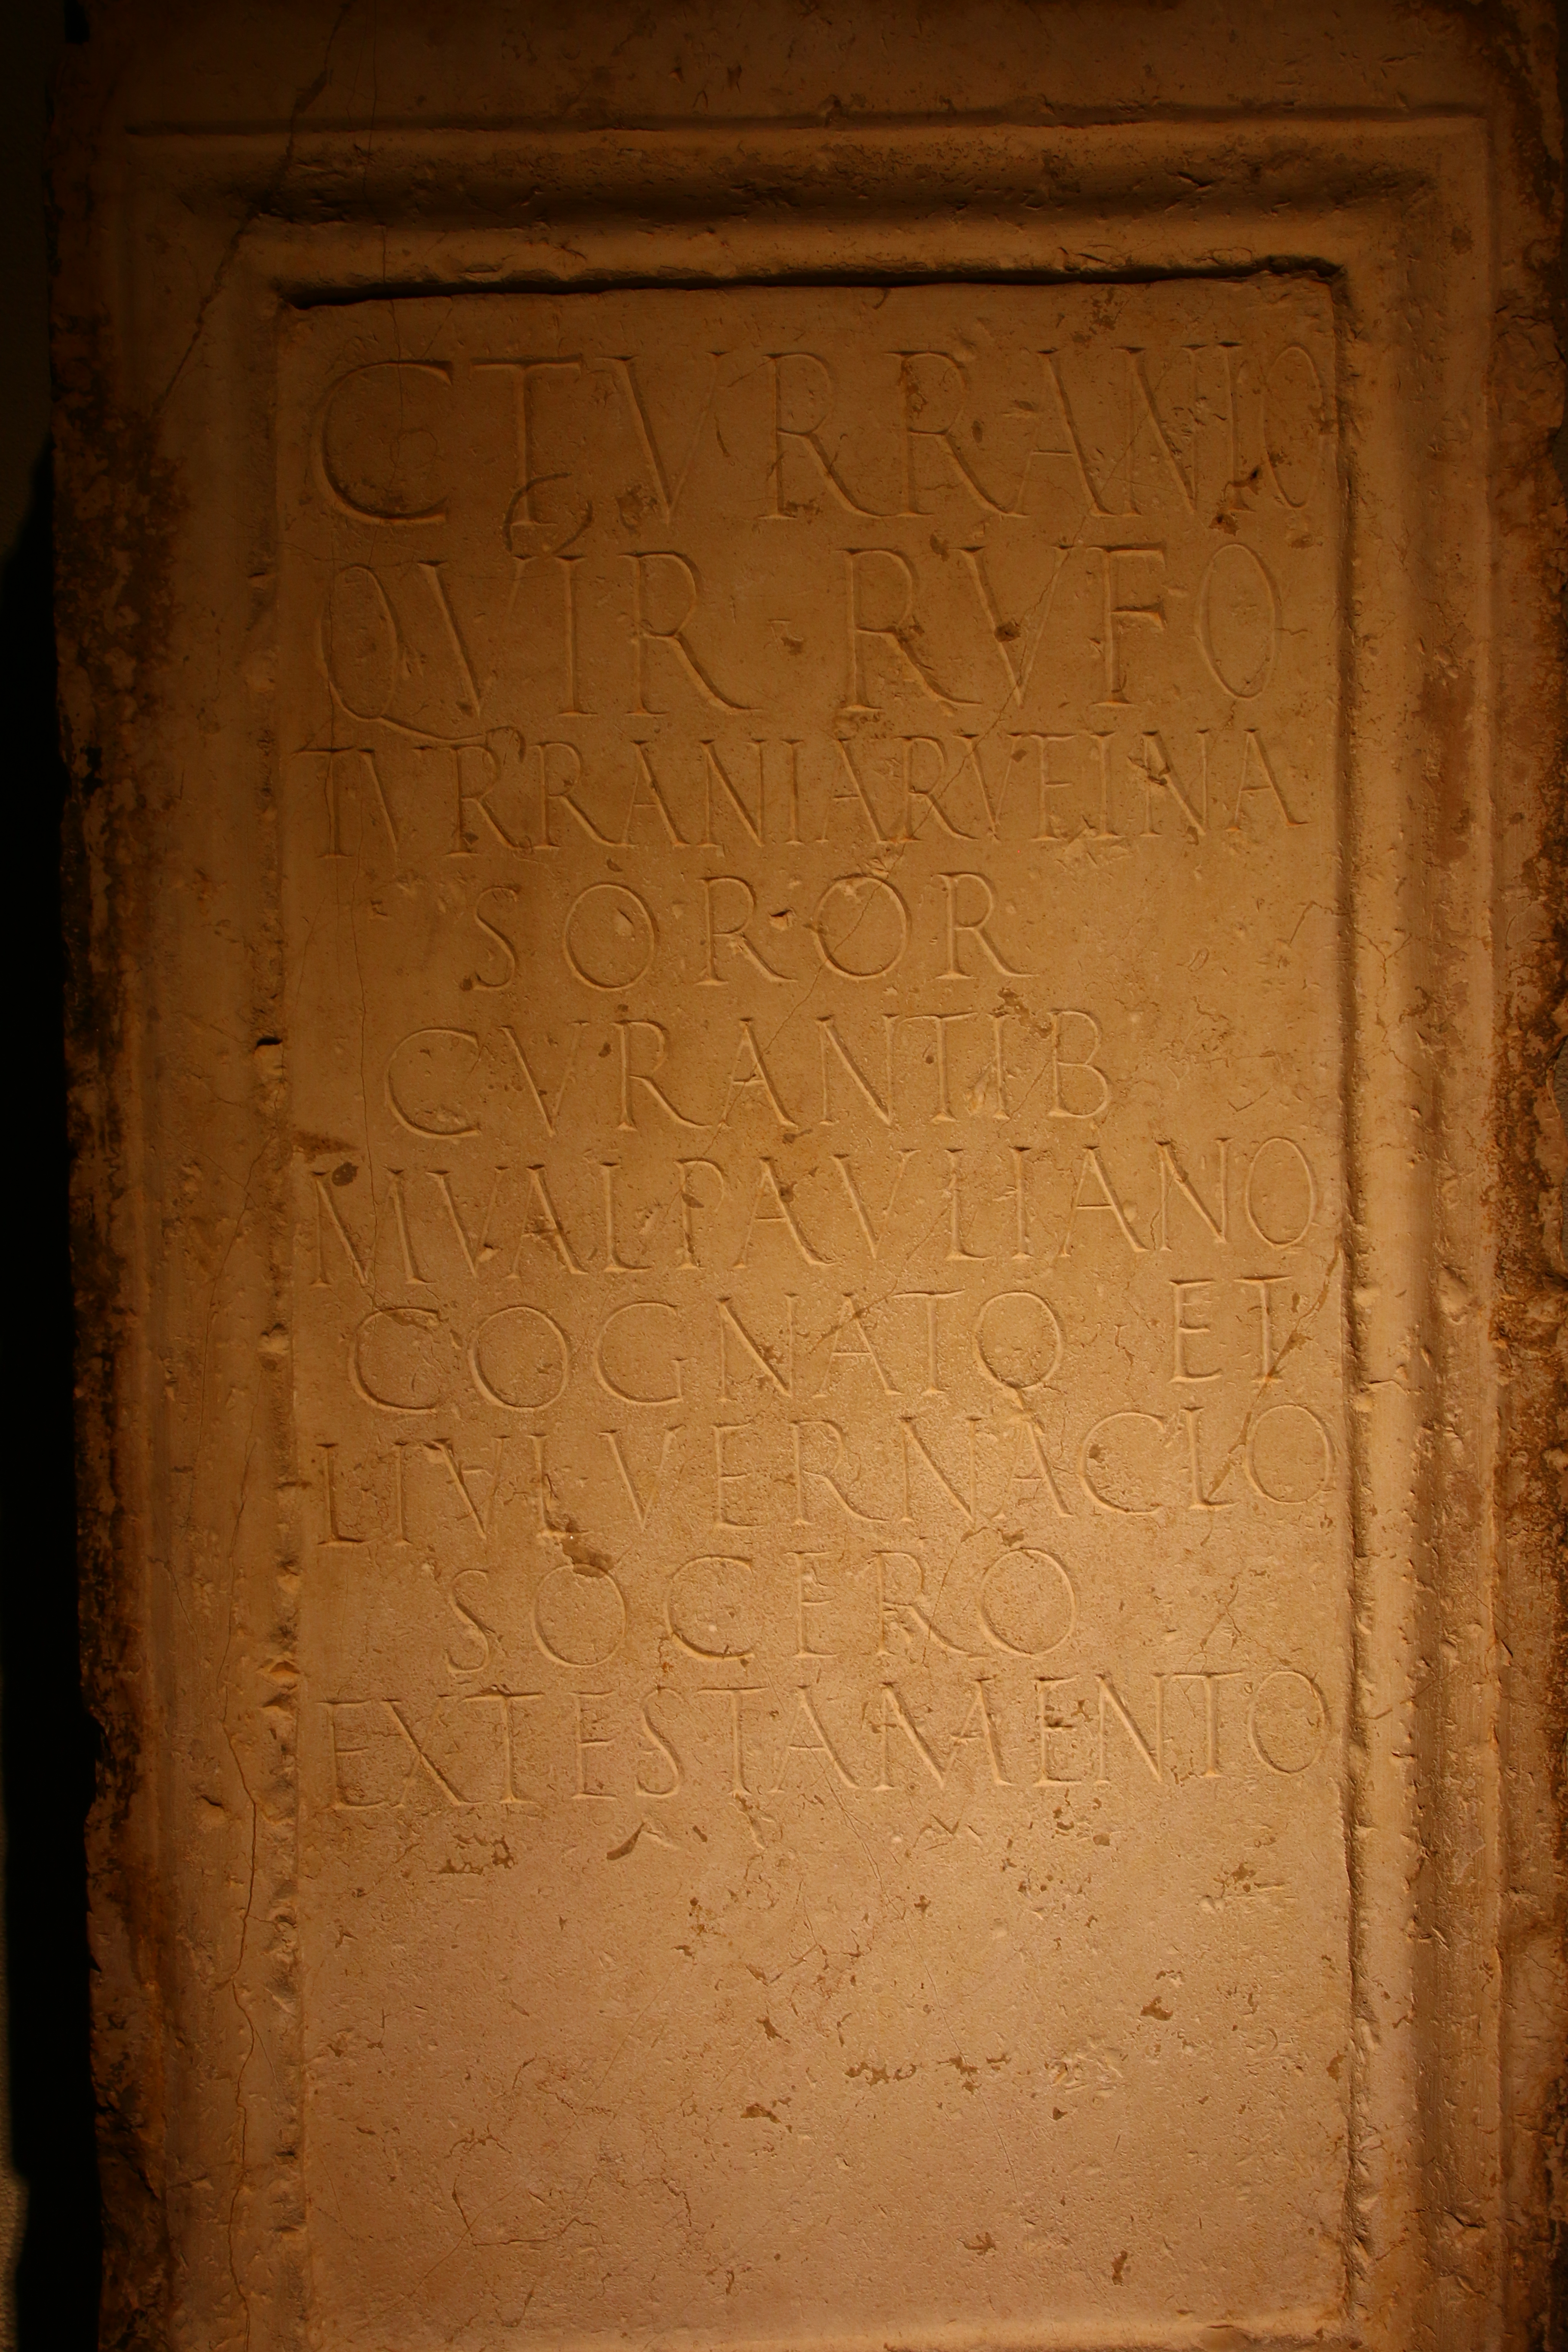 C TVRRANIO
QVIR · RVFO
TVRRANIA RVFINA
SOROR
CVRANTIB
M VAL PAVLIANO
COGNATO ET
L IVL VERNACLO
SOCERO
EX TESTAMENTO